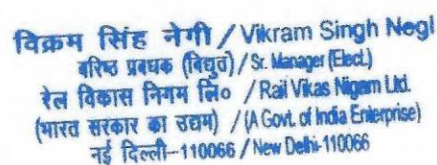 विक्रम सिंह नेगी / Vikram Singh Negi
वरिष्ठ प्रबधक (विद्युत) / Sr. Manager (Elect.)
रेल विकास निगम लि० / Rail Vikas Nigam Ltd.
(भारत सरकार का उद्यम) / (A Govt. of India Enterprise)
नई दिल्ली-110066 / New Delhi-110066